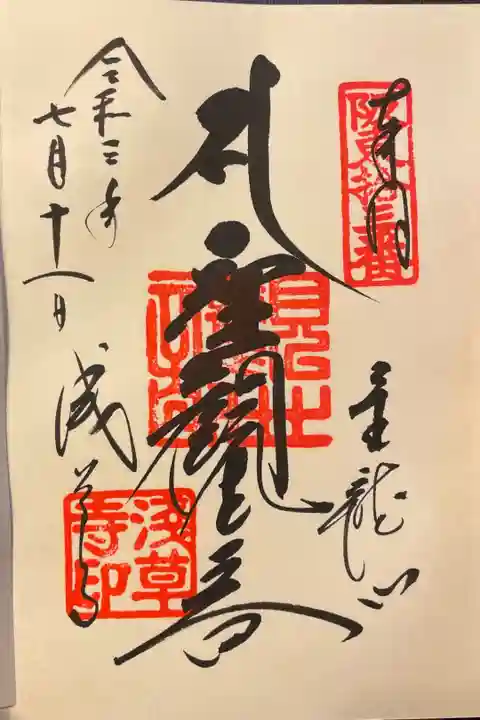 奉拝
阪東拾三番
金龍山
聖観世音
令和三年
七月十一日
浅草寺
浅草寺印